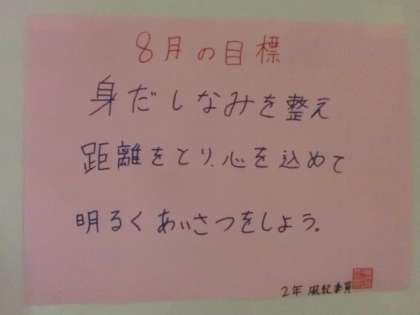 8月の目標
身だしなみを整え
距離をとり、心を込めて
明るくあいさつをしよう。
2年 風紀委員